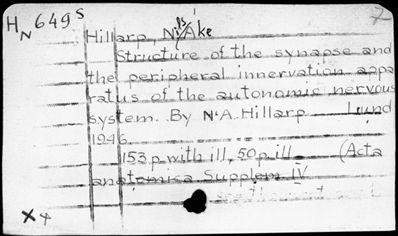 HN 649s
Hillarp, Nils Åke
Structure of the synapse and
the peripheral innervation appa
ratus of the autonomic nervous
system. By N.A. Hillarp Lund
1946.
153 p. with ill, 50 p. ill. (Acta
anatomica Supplem. IV
X 4